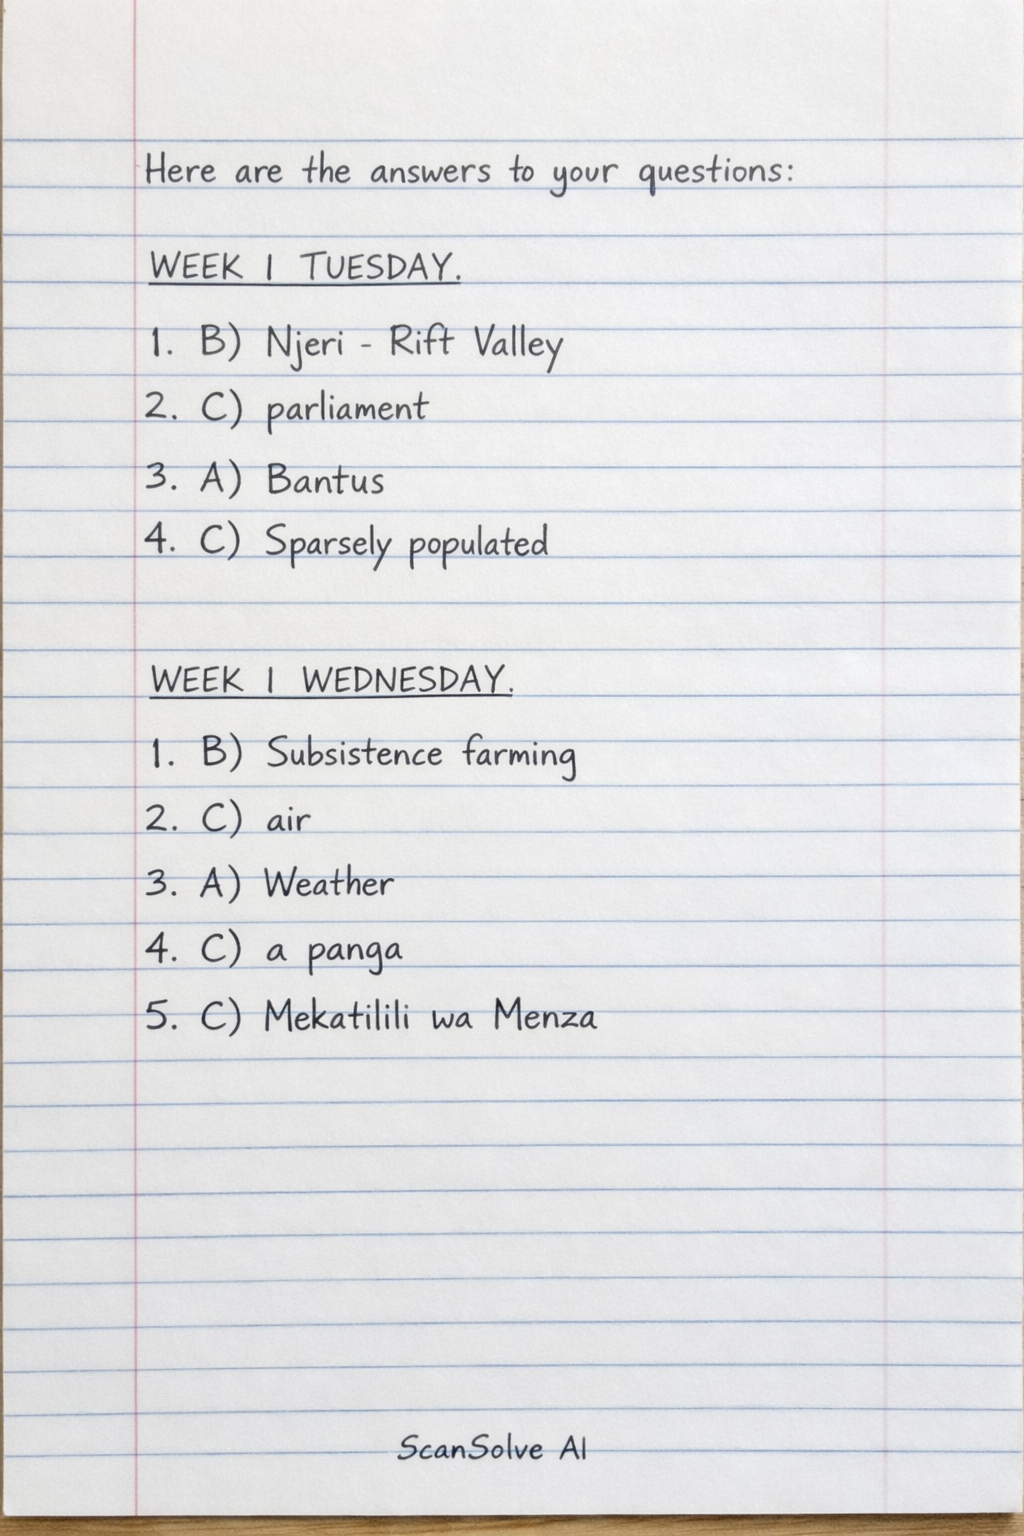 Here are the answers to your questions:
WEEK 1 TUESDAY.
1. B) Njeri - Rift Valley
2. C) parliament
3. A) Bantus
4. C) Sparsely populated
WEEK 1 WEDNESDAY.
1. B) Subsistence farming
2. C) air
3. A) Weather
4. C) a panga
5. C) Mekatilili wa Menza
ScanSolve AI